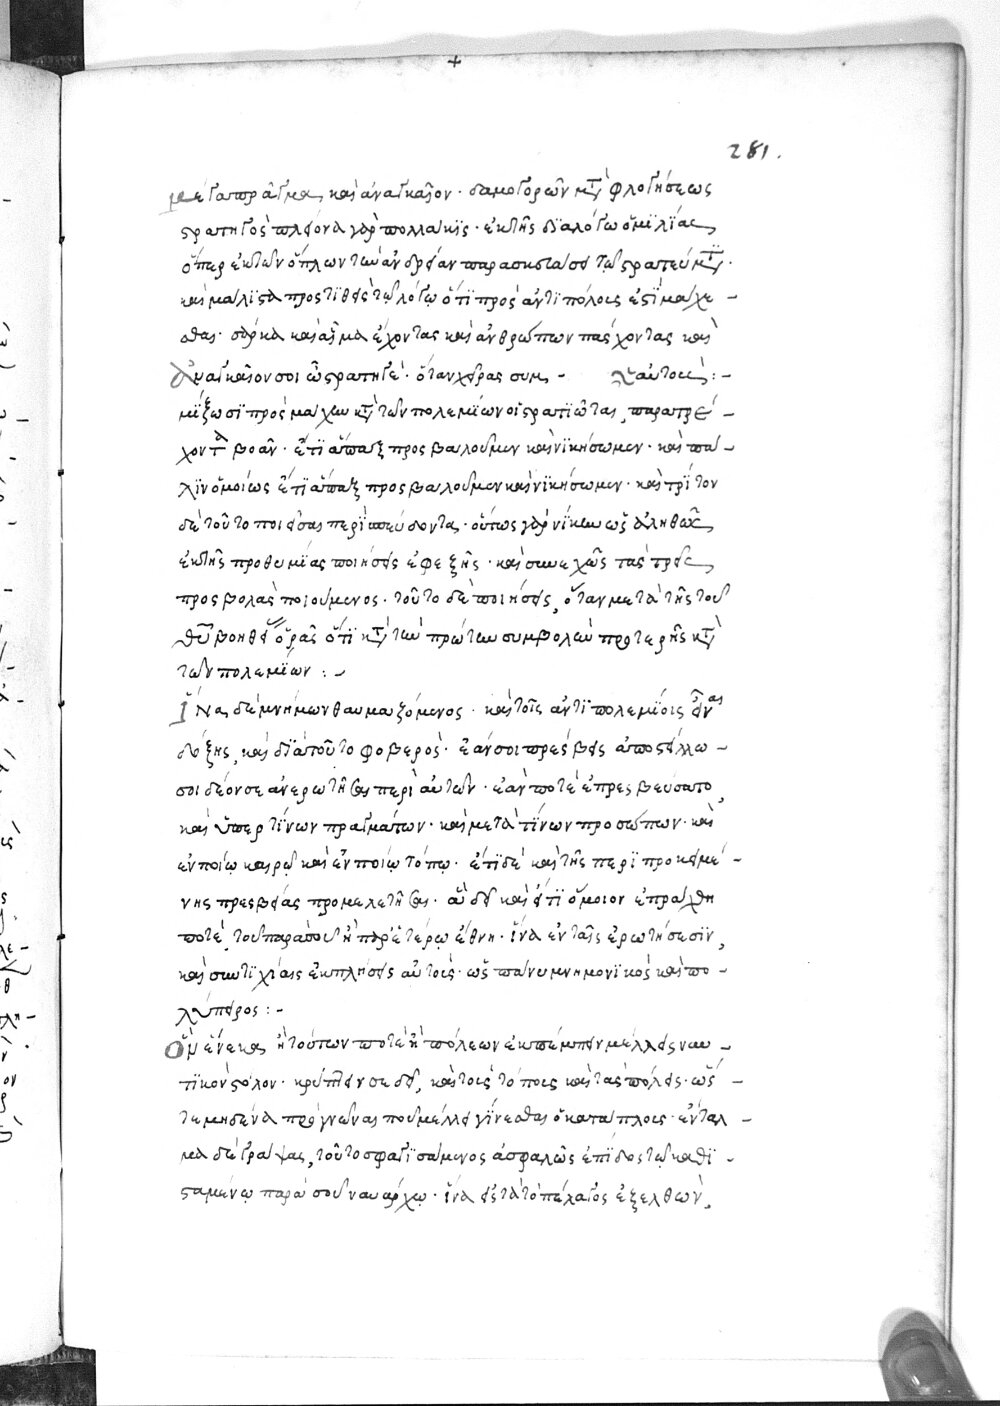 281.
μέγα πρᾶγμα καὶ ἀναγκαῖον· δημηγορῶν μετὰ φλογήσεως
στρατηγὸς πλείονα γὰρ πολλάκις· ἐκ τῆς διαλόγω ὁμιλίας
ὅπερ ἐκ τῶν ὅπλων τὴν ἀνδρείαν παρασκευάσαι
καὶ μάλιστα προστιθεὶς τῷ λόγῳ ὅτι πρὸς ἀντιπάλους ἐστὶ μάχε
σθαι· σάρκα καὶ αἷμα ἔχοντας καὶ ἀνθρώπων πάσχοντας καὶ
Ἀναγκαῖον σοι ὦ στρατηγέ· ὅταν χεῖρας συμ αὐτοῖς:
μίξωσι πρὸς μάχην μετὰ τῶν πολεμίων οἱ στρατιῶται, παρατρέ
χοντα βοᾶν· ἔτι ἅπαξ προσβαλοῦμεν καὶ νικήσωμεν· καὶ πά
λιν ὁμοίως ἔτι ἅπαξ προσβαλοῦμεν καὶ νικήσωμεν· καὶ τρίτον
δὲ τοῦτο ποιεῖσαι περὶ σπεύδοντα· οὕτως γὰρ νίκην ὡς ἀληθῶς
ἐκ τῆς προθυμίας ποιήσεις ἐφεξῆς· καὶ συνεχῶς τὰς τρεῖς
προσβολὰς ποιούμενος· τοῦτο δὲ ποιήσεις, ὅταν μετὰ τῆς τοῦ
θῦ βοηθεί ὁρᾶς ὅτι μετὰ τὴν πρώτην συμβολὴν προτερῆς μετὰ
τῶν πολεμίων:
Ἵνα δὲ μνήμων θαυμαζόμενος· καὶ τοῖς ἀντιπολεμίοις εἶναι
δόξης, καὶ διὰ τοῦτο φοβερός· ἐάν σοι πρέσβεις ἀποστείλω
σοι δέον σε ἀνερωτῆσαι περὶ αὐτῶν· ἐάν ποτε ἐπρεσβεύσατο,
καὶ ὑπὲρ τίνων πραγμάτων· καὶ μετὰ τίνων προσώπων· καὶ
ἐν ποίῳ καιρῷ καὶ ἐν ποίῳ τόπῳ· ἔτι δὲ καὶ τῆς περὶ προκειμέ
νης πρεσβείας προμελετῆσαι· ἂν δὲ καὶ ἔτι ὅμοιον ἐπράχθη
ποτέ, τοῦ παρὰ σοῦ ἢ παρ' ἑτέρῳ ἔθνη· ἵνα ἐν ταῖς ἐρωτήσεσιν,
καὶ συντυχίαις ἐκπλήσεις αὐτούς· ὡς πάνυ μνημονικὸς καὶ πο
λύπειρος:
Ὃν ἕνεκα ἢ τόπων ποτὲ ἢ πόλεων ἐκπέμπειν μέλλεις ναυ
τικὸν στόλον· κρύπτειν σε δεῖ, καὶ τοὺς τόπους καὶ τὰς πόλεις· ὥς
τε μηδένα προγνῶναι ποῦ μέλλει γίνεσθαι ὁ κατάπλους· ἔνταλ
μα δὲ γράψας, τοῦτο σφαγισάμενος ἀσφαλῶς ἐπίδος τῷ καθι
σταμένῳ παρὰ σοῦ ναυάρχῳ· ἵνα εἰς τὰ τὸ πέλαγος ἐξελθὼν,